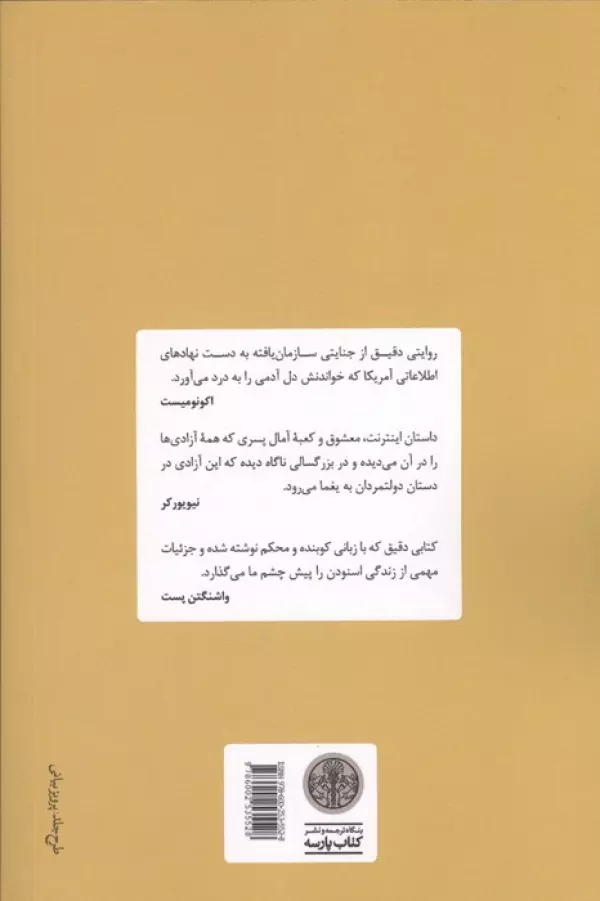 روایتی دقیق از جنایتی سازمان‌یافته به دست نهادهای
اطلاعاتی آمریکا که خواندنش دل آدمی را به درد می‌آورد.
اکونومیست
داستان اینترنت، معشوق و کعبهٔ آمال پسری که همهٔ آزادی‌ها
را در آن می‌دیده و در بزرگسالی ناگاه دیده که این آزادی در
دستان دولتمردان به یغما می‌رود.
نیویورکر
کتابی دقیق که با زبانی کوبنده و محکم نوشته شده و جزئیات
مهمی از زندگی اسنودن را پیش چشم ما می‌گذارد.
واشنگتن پست
طرح جلد: پرویز بیانی
ISBN: 978-600-253-552-8
9786002535528
بنگاه ترجمه و نشر
کتاب پارسه